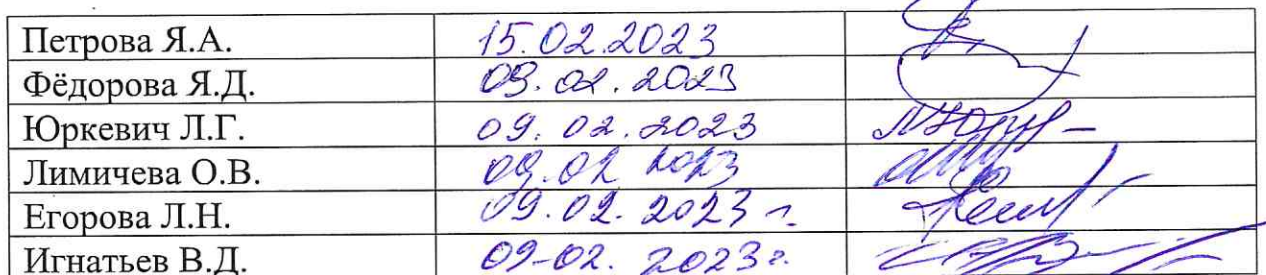 Петрова Я.А. 15.02.2023
Фёдорова Я.Д. 09.02.2023
Юркевич Л.Г. 09.02.2023
Лимичева О.В. 09.02 2023
Егорова Л.Н. 09.02.2023 г.
Игнатьев В.Д. 09-02. 2023г.